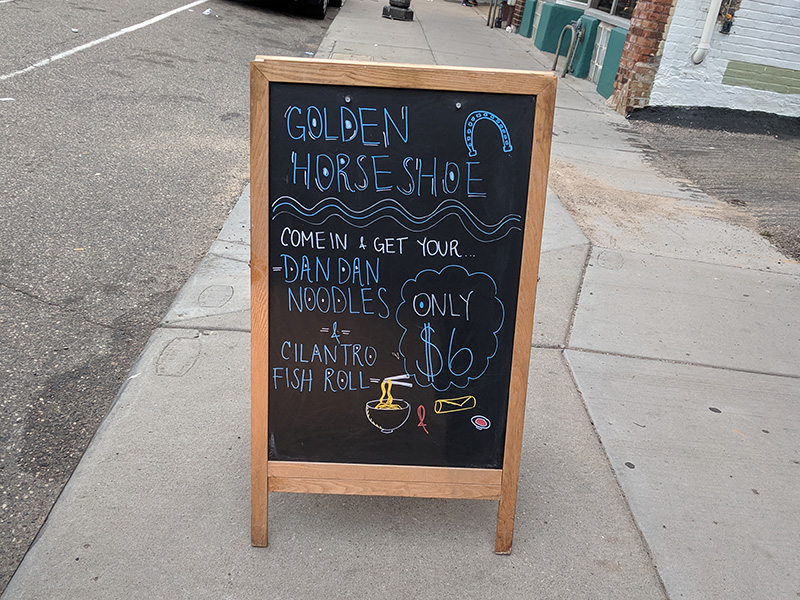 GOLDEN
HORSESHOE
COME IN & GET YOUR...
=DAN DAN
NOODLES
=&=
CILANTRO
FISH ROLL=
ONLY
$6
&